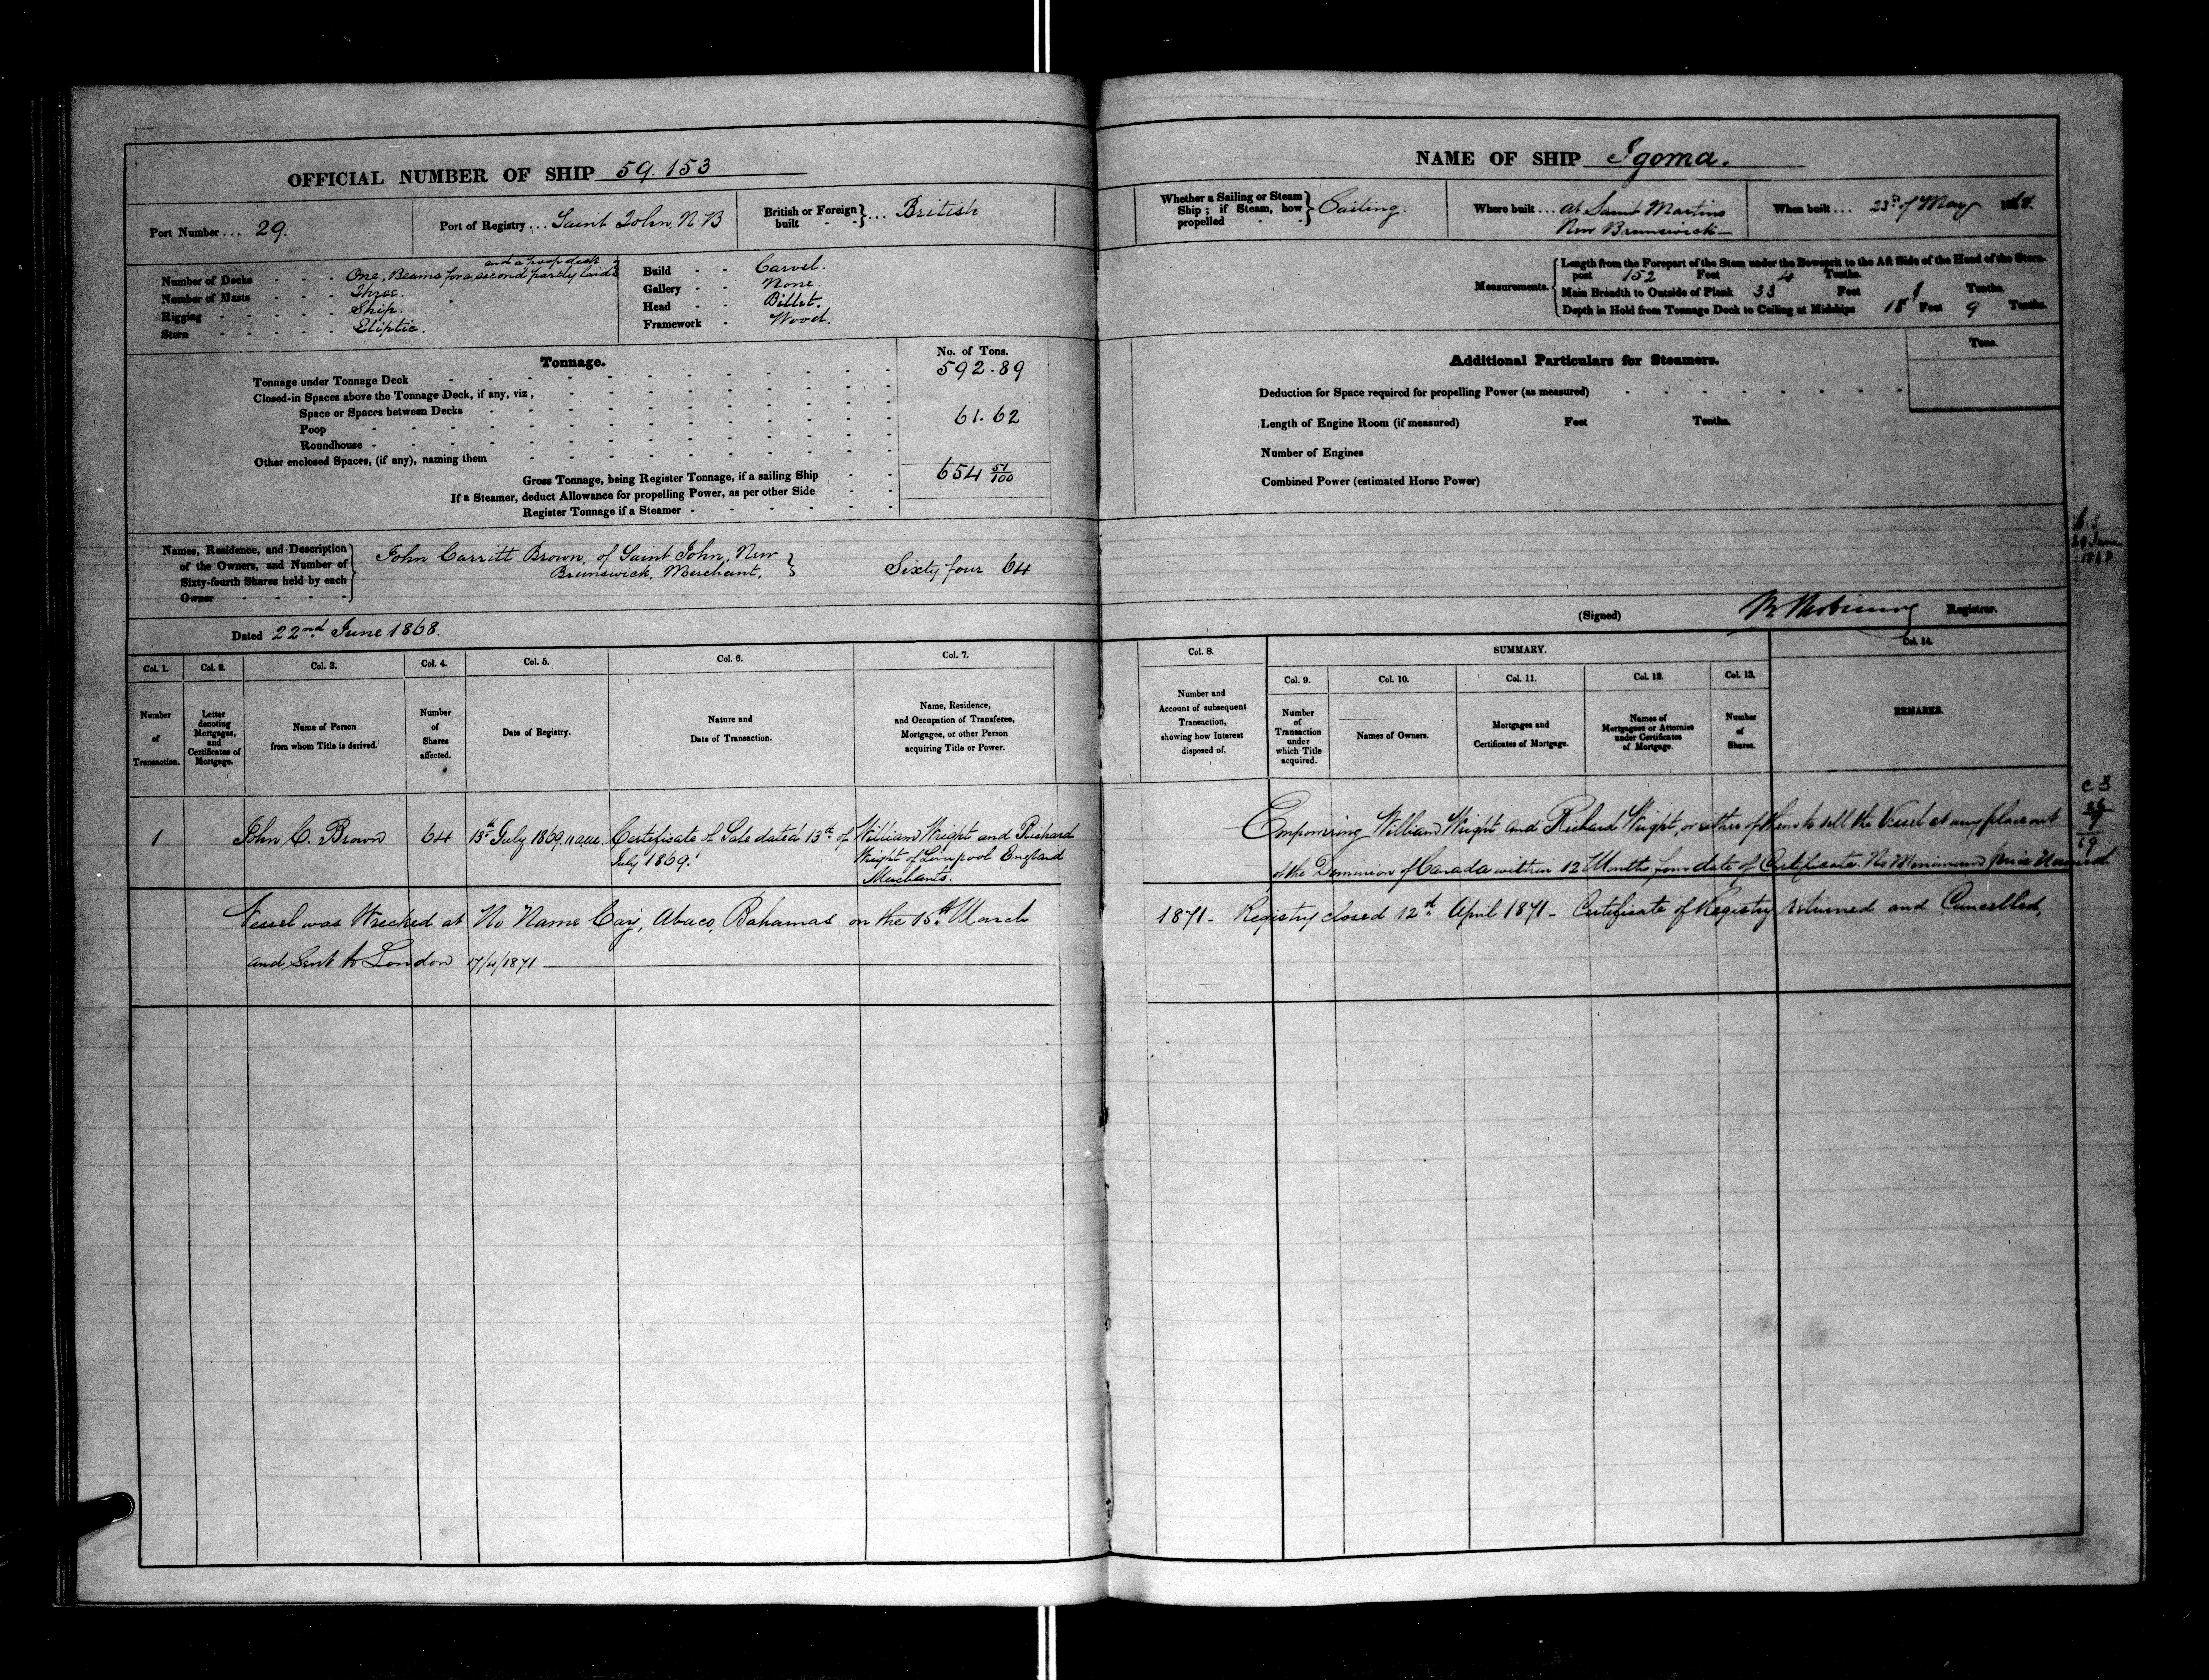 OFFICIAL NUMBER OF SHIP 59.153
Port Number ... 29.
Port of Registry ... Saint John, N.B
British or Foreign built - - } ... British
Number of Decks - - - One, Beams for a second partly laid and a poop deck
Number of Masts - - - Three.
Rigging - - - - - Ship.
Stern - - - - - Eliptic.
Build - - Carvel.
Gallery - - None.
Head - - Billet.
Framework - Wood.
Tonnage.
No. of Tons.
Tonnage under Tonnage Deck 592.89
Closed-in Spaces above the Tonnage Deck, if any, viz,
Space or Spaces between Decks
Poop 61.62
Roundhouse
Other enclosed Spaces, (if any), naming them
Gross Tonnage, being Register Tonnage, if a sailing Ship 654 51/100
If a Steamer, deduct Allowance for propelling Power, as per other Side
Register Tonnage if a Steamer
Names, Residence, and Description of the Owners, and Number of Sixty-fourth Shares held by each Owner
John Carritt Brown, of Saint John, New
Brunswick, Merchant, } Sixty four 64
Dated 22nd June 1868.
NAME OF SHIP Igoma.
Whether a Sailing or Steam Ship; if Steam, how propelled } Sailing.
Where built ... at Saint Martins
New Brunswick
When built ... 23rd of May 1868.
Measurements.
Length from the Forepart of the Stem under the Bowsprit to the Aft Side of the Head of the Stern-
post 152 Feet 4 Tenths.
Main Breadth to Outside of Plank 33 Feet 1 Tenths.
Depth in Hold from Tonnage Deck to Ceiling at Midships 18 Feet 9 Tenths.
Additional Particulars for Steamers.
Tons.
Deduction for Space required for propelling Power (as measured)
Length of Engine Room (if measured) Feet Tenths.
Number of Engines
Combined Power (estimated Horse Power)
29 June
1868
(Signed) Registrar.
Col. 1. Col. 2. Col. 3. Col. 4. Col. 5. Col. 6. Col. 7.
Number of Transaction.
Letter denoting Mortgages, and Certificates of Mortgage.
Name of Person from whom Title is derived.
Number of Shares affected.
Date of Registry.
Nature and Date of Transaction.
Name, Residence, and Occupation of Transferee, Mortgagee, or other Person acquiring Title or Power.
Col. 8.
Number and Account of subsequent Transaction, showing how Interest disposed of.
SUMMARY.
Col. 9. Col. 10. Col. 11. Col. 12. Col. 13.
Number of Transaction under which Title acquired.
Names of Owners.
Mortgages and Certificates of Mortgage.
Names of Mortgagees or Attornies under Certificates of Mortgage.
Number of Shares.
Col. 14.
REMARKS.
1 John C. Brown 64 13th July 1869. 11 a.m. Certificate of Sale dated 13th of
July 1869.
William Wright and Richard
Wright of Liverpool England
Merchants.
Empowering William Wright and Richard Wright, or either of them to sell the Vessel at any place out
of the Dominion of Canada within 12 Months from date of Certificate. No Minimum price Named
C S
26
9
69
Vessel was Wrecked at No Name Cay, Abaco, Bahamas on the 15th March
1871 - Registry closed 12th April 1871 - Certificate of Registry returned and Cancelled,
and Sent to London 17/4/1871